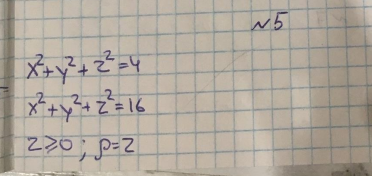 №5
x²+y²+z²=4
x²+y²+z²=16
z⩾0 ; ρ=z